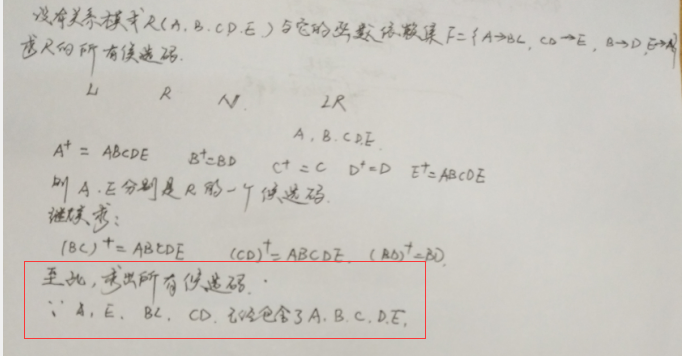 设有关系模式R(A,B,CD,E)与它的函数依赖集F={A→BC,CD→E,B→D,E→A}
求R的所有候选码.
L R N LR
A,B,CD,E
A⁺=ABCDE B⁺=BD C⁺=C D⁺=D E⁺=ABCDE
则A.E分别是R的一个候选码.
继续求:
(BC)⁺=ABCDE (CD)⁺=ABCDE, (BD)⁺=BD.
至此,求出所有候选码.
∵A,E,BC,CD已经包含了A,B,C,D,E,